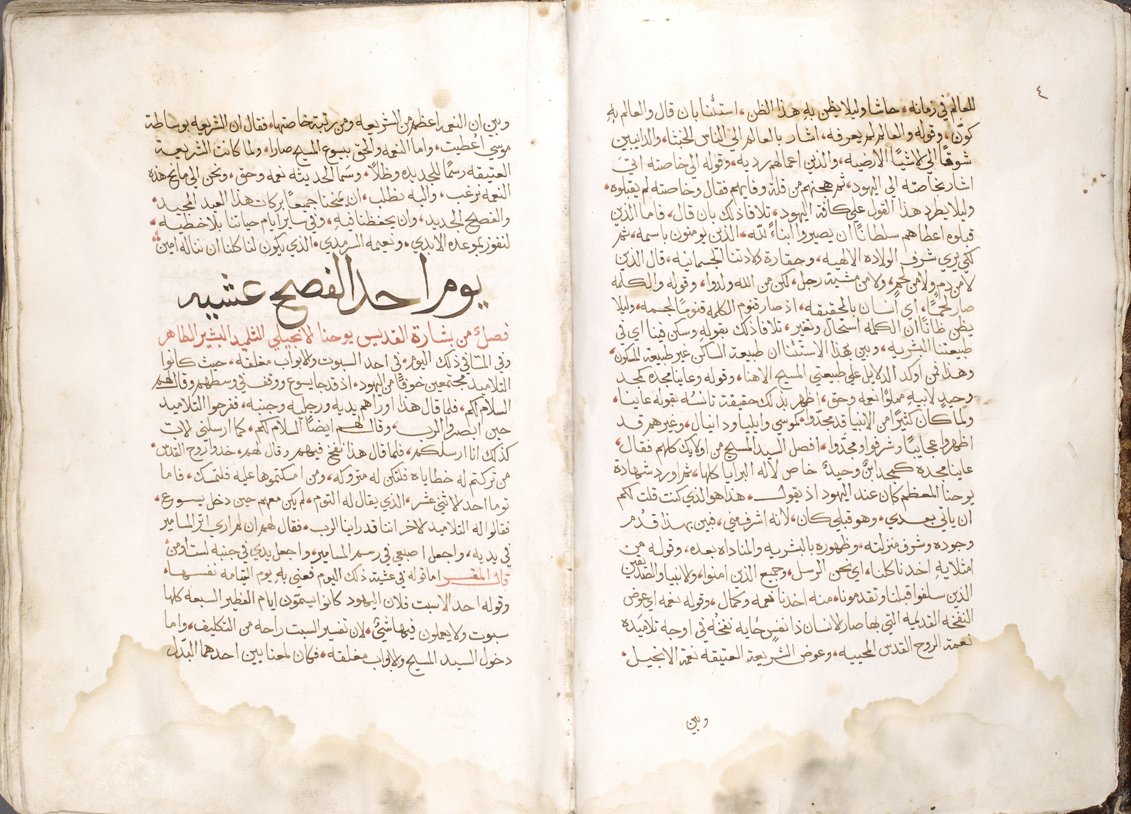 ٤
للعالم في زمانه، حاشا وليلا يظن به هذا الظن، استثنا بان قال والعالم به
كون، وقوله والعالم لم يعرفه، اشار بالعالم الى الناس الخبثا، والذايبين
شوقاً الى الاشيا الارضيه، والذين اعمالهم رديه، وقوله الى خاصته اتى
اشار بخاصته الى اليهود، ثم هجنهم من قلة وفايهم فقال وخاصته لم يقبلوه،
وليلا يطرد هذا القول على كافة اليهود، تلافا ذلك بان قال، فاما الذين
قبلوه اعطاهم سلطاناً ان يصيروا ابناً لله، الذين يومنون باسمه، ثم
لكي يري شرف الولاده الالهيه، وحقارة ولادتنا الجسمانيه، قال الذين
لا من دم ولا من لحم، ولا من مشية رجل، لكن من الله ولدوا، وقوله والكلمه
صار لحماً، اي انسان بالحقيقه، اذ صار قنوم الكلمه قنوماً لجسمه، وليلا
يظن ظاناً ان الكلمه استحال وتغير، تلافا ذلك بقوله وسكن فينا اي في
طبيعتنا البشريه، وبين بهذا الاستثنا ان طبيعة الساكن غير طبيعة المسكون،
وهذا من اوكد الدلايل على طبيعتي المسيح الاهنا، وقوله وعاينا مجده كمجد
وحيد لابيه مملوا نعمه وحق، اظهر بذلك حقيقة تانسه بقوله عاينا،
ولما كان كثيراً من الانبيا قد مجدوا، كموسى وايليا ودانيال، وغيرهم قد
اظهروا عجايباً وشرفوا ومجدوا، افصل السيد المسيح من اوليك كلهم فقال،
عاينا مجده كمجد ابنٍ وحيدٍ خاص لاله البرايا كلها، ثم اورد شهادة
يوحنا المعظم كان عند اليهود اذ يقول، هذا هو الذي كنت قلت لكم
ان ياتي بعدي، وهو قبلي كان، لانه اشرف مني، فبين بهذا قدم
وجوده وشرف منزلته، وظهوره بالبشريه والمناداه بعده، وقوله من
امتلايه اخذنا كلنا، اي نحن الرسل، وجميع الذين امنوا، والانبيا والصديقين
الذين سلفوا قبلنا وتقدمونا، منه اخذنا نعمه وكمال، وقوله نعمه اي عوض
النفخه القديمه التي بها صار الانسان ذا نفسٍ حايه نفخه في اوجه تلاميذه
نعمة الروح القدس المحييه، وعوض الشريعة العتيقه نعمة الانجيل.
وبين
وبين ان النعمه اعظم من الشريعه ومن رتبة خاصتها، فقال ان الشريعه بوساطة
موسى اعطيت، واما النعمه والحق بيسوع المسيح صارا، ولما كانت الشريعة
العتيقه رسماً للجديده وظلاً، وسما الحديثه نعمه وحق، ونحن الى مانح هذه
النعمه نرغب، واليه نطلب، ان يمنحنا جميعاً بركات هذا العيد المجيد،
والفصح الجديد، وان يحفظنا فيه، وفي ساير ايام حياتنا بلا خطيه،
لنفوز بموعده الابدي، ونعيمه السرمدي، الذي يكون لنا كلنا ان نناله امين
يوم احد الفصح عشيه
فصل من بشارة القديس يوحنا الانجيلي التلميذ البشير الطاهر
وفي المسا في ذلك اليوم في احد السبوت والابواب مغلقه، حيث كانوا
التلاميذ مجتمعين خوفاً من اليهود، اذ قد جا يسوع ووقف في وسطهم وقال لهم
السلام لكم، فلما قال هذا اوراهم يديه ورجليه وجنبه، ففرحوا التلاميذ
حين ابصروا الرب، وقال لهم ايضاً السلام لكم، كما ارسلني الاب
كذلك انا ارسلكم، فلما قال هذا نفخ فيهم وقال لهم، خذوا روح القدس
من تركتم له خطاياه فلتكن له متروكه، ومن امسكتموها عليه فلتمسك، فاما
توما احد الاثني عشر، الذي يقال له التوم، لم يكن معهم حين دخل يسوع،
فقالوا له التلاميذ الاخر اننا قد راينا الرب، فقال لهم ان لم اري اثر المسامير
في يديه، واجعل اصبعي في رسم المسامير، واجعل يدي في جنبه لست اومن
قال المفسر اما قوله في عشية ذلك اليوم فعني به يوم القيامه نفسها،
وقوله احد الاسبت فلان اليهود كانوا يسمون ايام الفطير السبعه كلها
سبوت ولا يعملون فيها شي، لان تفسير السبت راحه من التكليف، واما
دخول السيد المسيح والابواب مغلقه، فكان لمعنا بين احدهما البدل